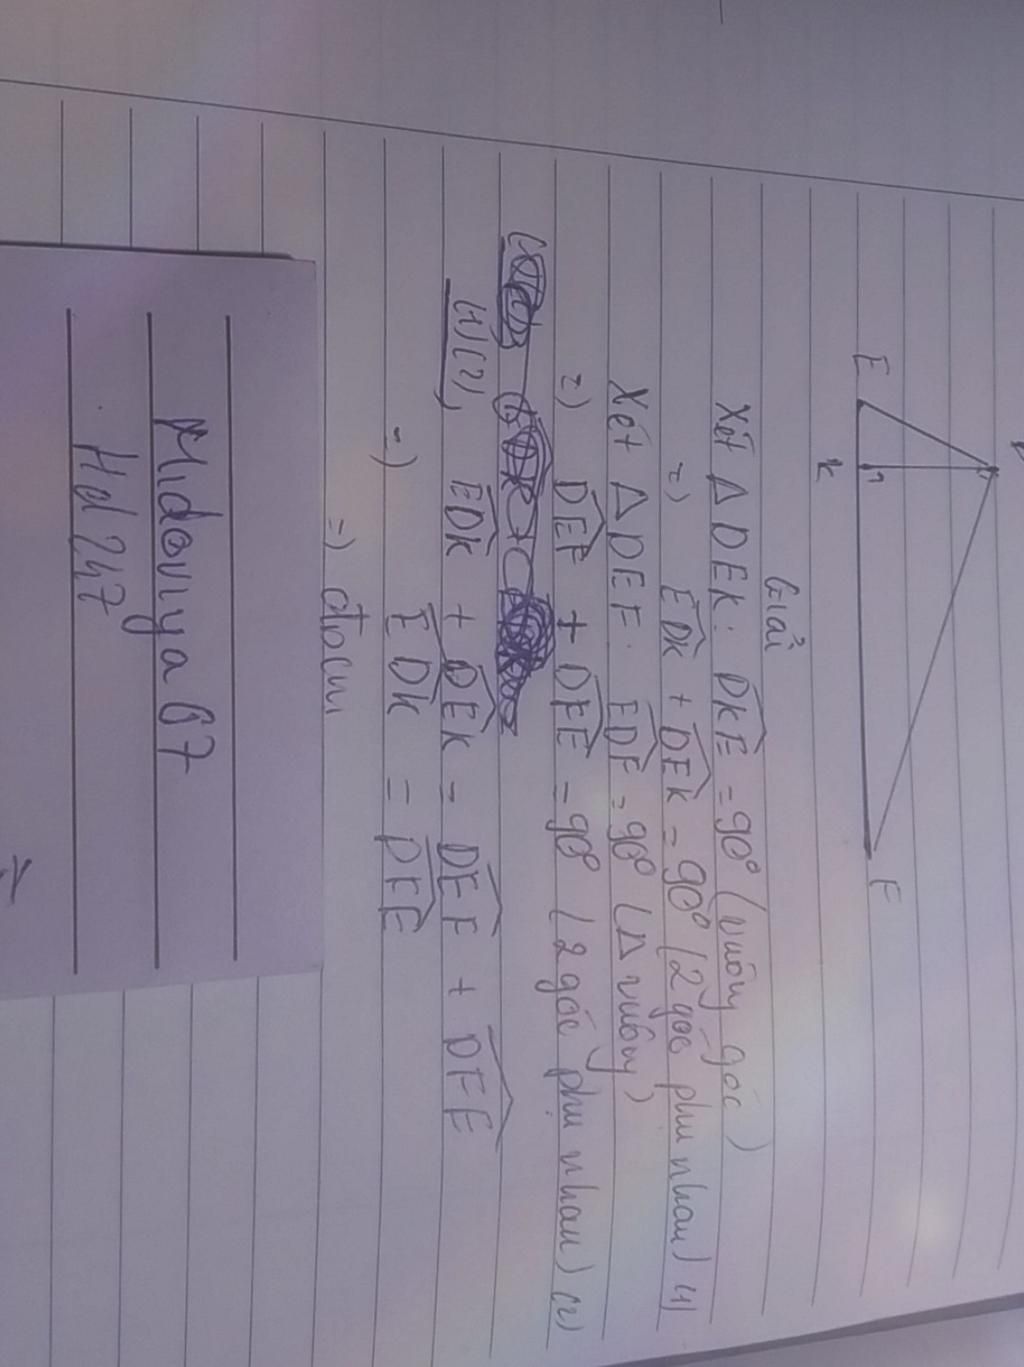 E
K
F
Giải
Xét Δ DEK: DKE = 90° (vuông góc)
=) EDK + DEK = 90° (2 góc phụ nhau) (1)
Xét Δ DEF: EDF = 90° (Δ vuông)
=) DEF + DFE = 90° (2 góc phụ nhau) (2)
(1)(2), EDK + DEK = DEF + DFE
=) EDK = DFE
=) đpcm
Midoriya67
Hd 247